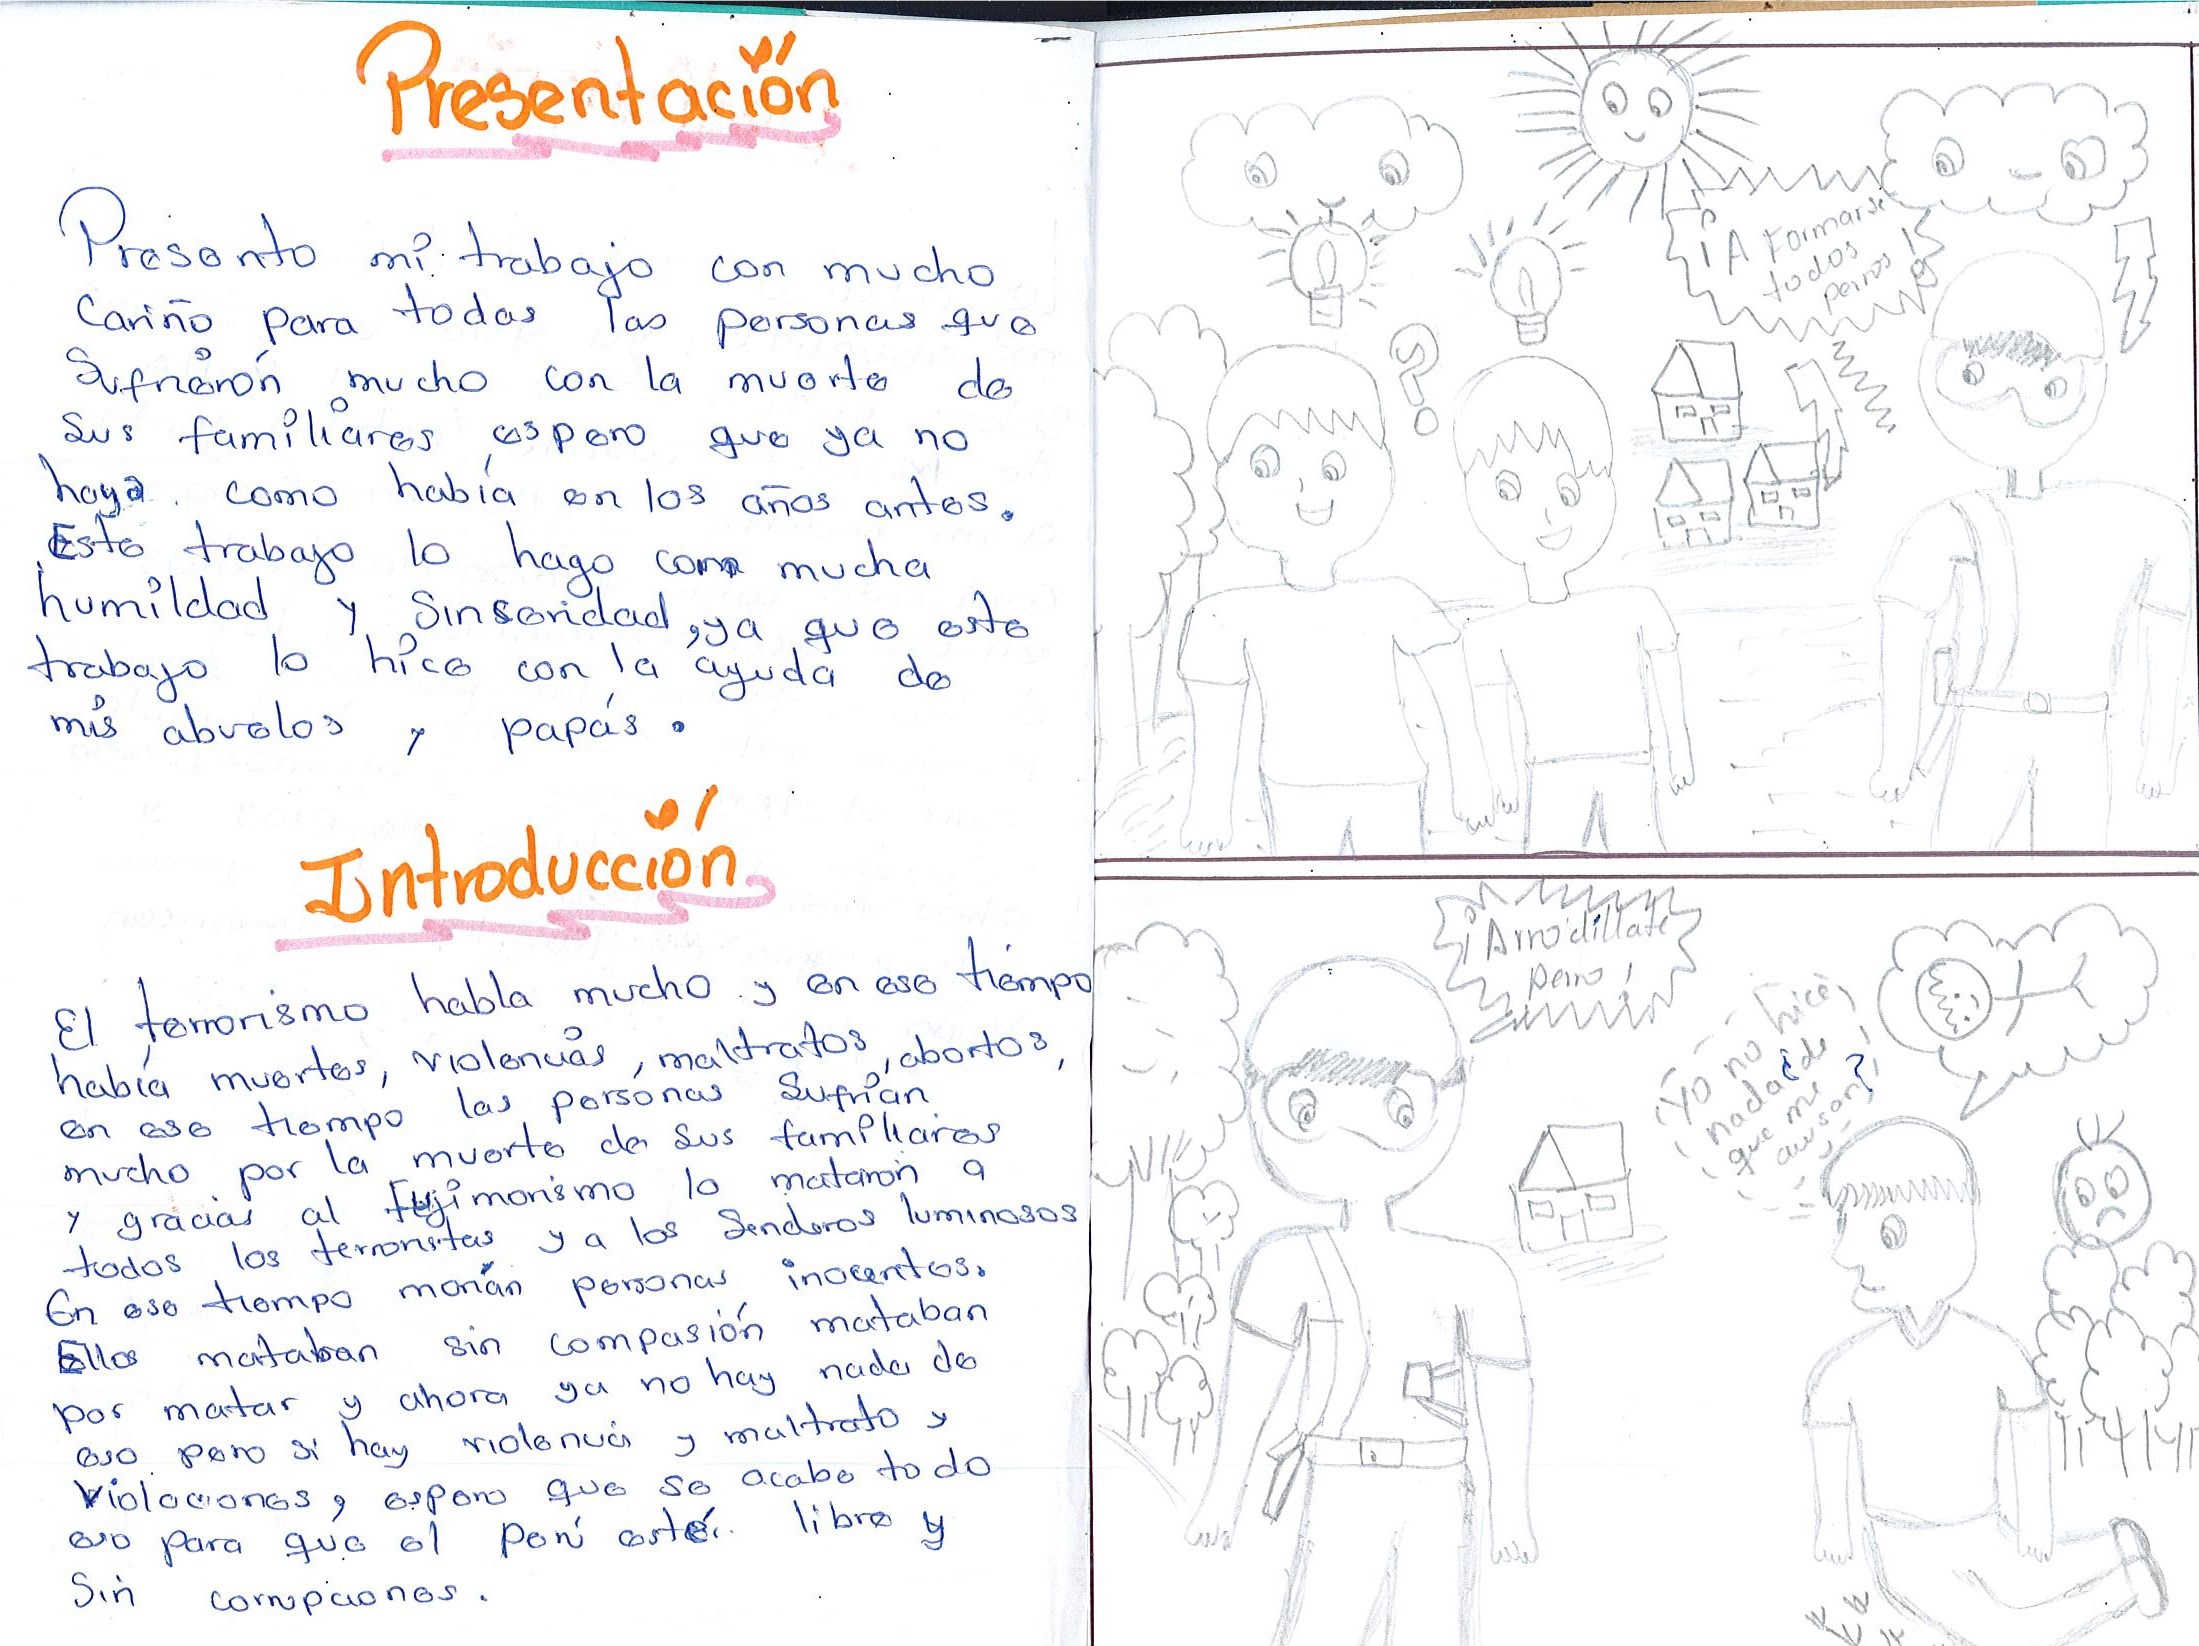 Presentación
Presento mi trabajo con mucho
Cariño para todas las personas que
Sufrierón mucho con la muerte de
Sus familiares espero que ya no
haya. como había en los años antes.
Este trabajo lo hago com mucha
humildad y Sinseridad, ya que este
trabajo lo hice con la ayuda de
mis abuelos y papás.
Introducción
El terrorismo habla mucho y en ese tiempo
había muertes, violencias, maltratos, abortos,
en ese tiempo las personas Sufrían
mucho por la muerte de Sus familiares
y gracias al fujimorismo lo mataron a
todos los terroristas y a los Senderos luminosos
En ese tiempo morían personas inocentes.
Ellos mataban sin compasión mataban
por matar y ahora ya no hay nada de
eso pero si hay violencia y maltrato y
violaciones, espero que se acabe todo
eso para que el Perú esté. libre y
Sin corrupciones.
¡A Formarse
todos
perros!
¡Arrodíllate
perro!
¡Yo no hice,
nada ¿de
que me
acusan?